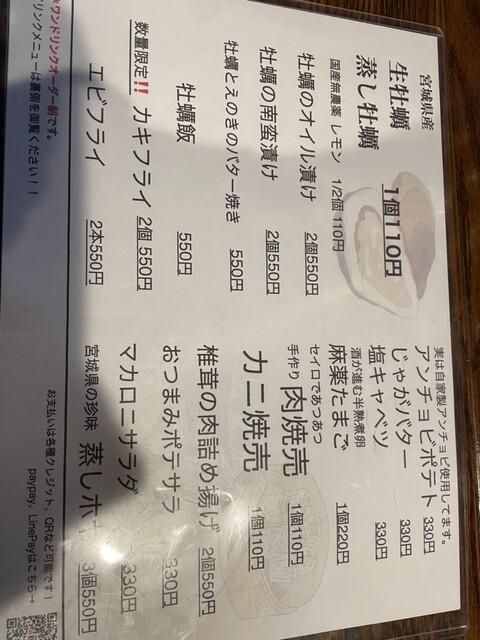 宮城県産
生牡蠣
蒸し牡蠣
1個110円
国産無農薬 レモン 1/2個 110円
牡蠣のオイル漬け 2個550円
牡蠣の南蛮漬け 2個550円
牡蠣とえのきのバター焼き 550円
牡蠣飯 550円
数量限定!! カキフライ 2個 550円
エビフライ 2本550円
実は自家製アンチョビ使用してます。
アンチョビポテト 330円
じゃがバター 330円
塩キャベツ 330円
酒が進む半熟煮卵
麻薬たまご 1個220円
セイロであつあつ
手作り 肉焼売 1個110円
カニ焼売 1個110円
椎茸の肉詰め揚げ 2個550円
おつまみポテサラ 330円
マカロニサラダ 330円
宮城県の珍味 蒸しホ 3個550円
※ワンドリンクオーダー制です。
リンクメニューは裏側を御覧ください!!
お支払いは各種クレジット、QRなど可能です!
paypay、LinePayはこちら→